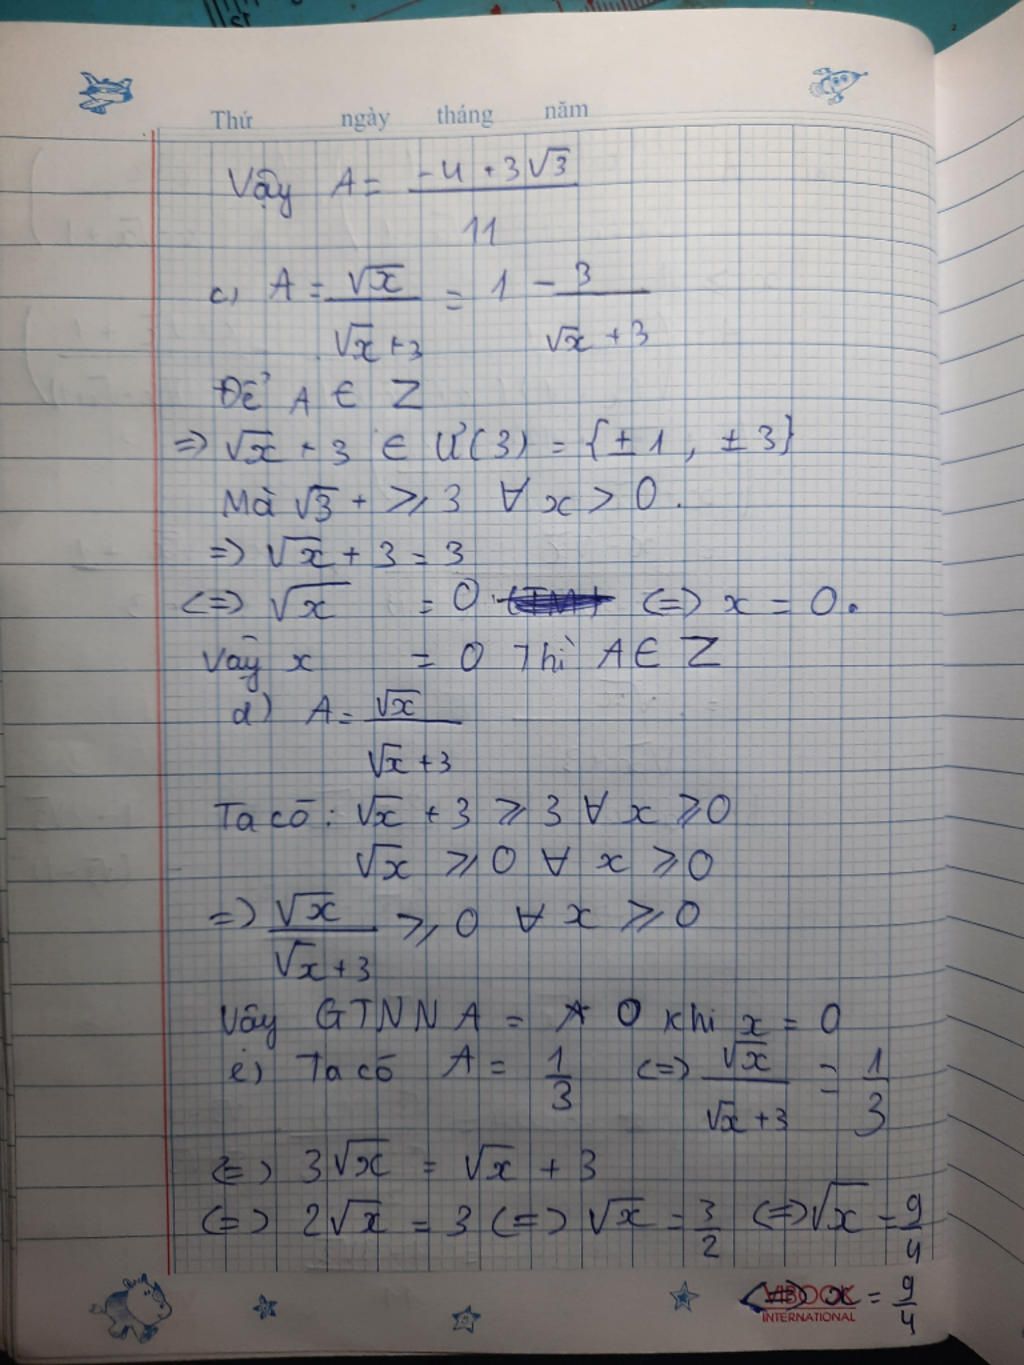 Thứ ngày tháng năm
Vậy A = \frac{-4 + 3\sqrt{3}}{11}
c) A = \frac{\sqrt{x}}{\sqrt{x} + 3} = 1 - \frac{3}{\sqrt{x} + 3}
Để A ∈ Z
=> √x + 3 ∈ Ư(3) = {±1, ±3}
Mà √3 + ≥ 3 ∀ x > 0.
=> √x + 3 = 3
<=> √x = 0 <=> x = 0.
Vậy x = 0 Thì A ∈ Z
d) A = \frac{\sqrt{x}}{\sqrt{x} + 3}
Ta có: √x + 3 ≥ 3 ∀ x ≥ 0
√x ≥ 0 ∀ x ≥ 0
=> \frac{\sqrt{x}}{\sqrt{x} + 3} ≥ 0 ∀ x ≥ 0
Vậy GTNN A = 0 khi x = 0
e) Ta có A = \frac{1}{3} <=> \frac{\sqrt{x}}{\sqrt{x} + 3} = \frac{1}{3}
<=> 3√x = √x + 3
<=> 2√x = 3 <=> √x = \frac{3}{2} <=> √x = \frac{9}{4}
<=> x = \frac{9}{4}
VIBOOK
INTERNATIONAL